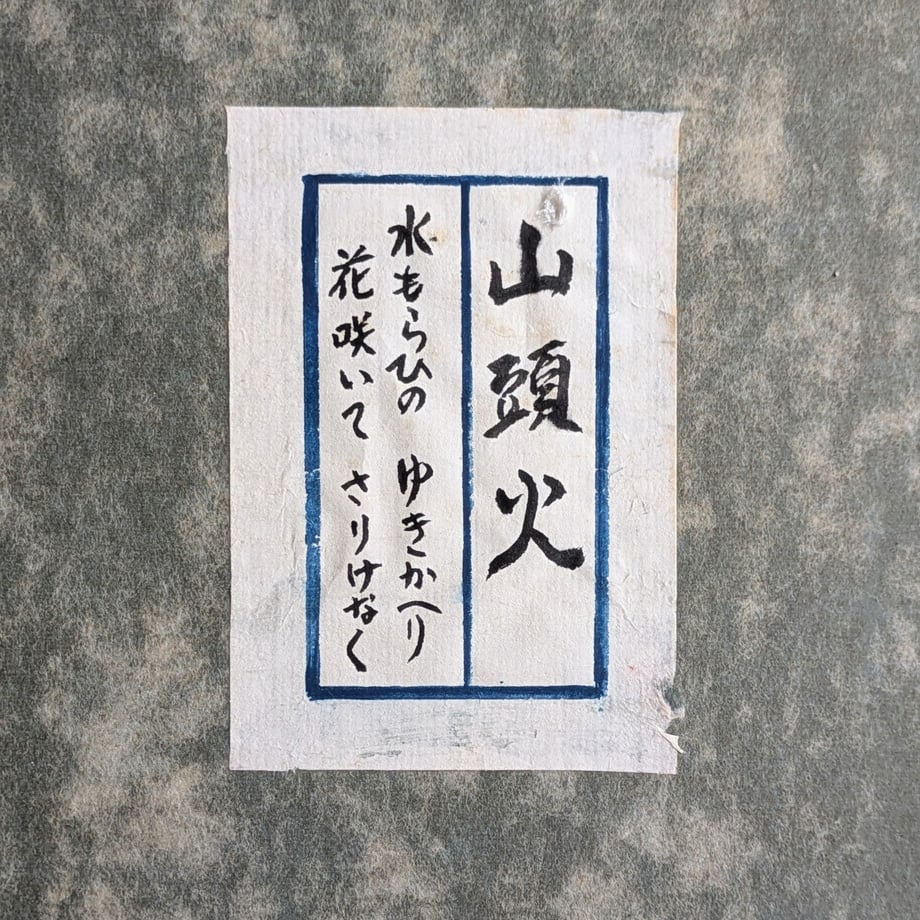 山頭火
水もらひの ゆきかへり
花咲いて さりけなく